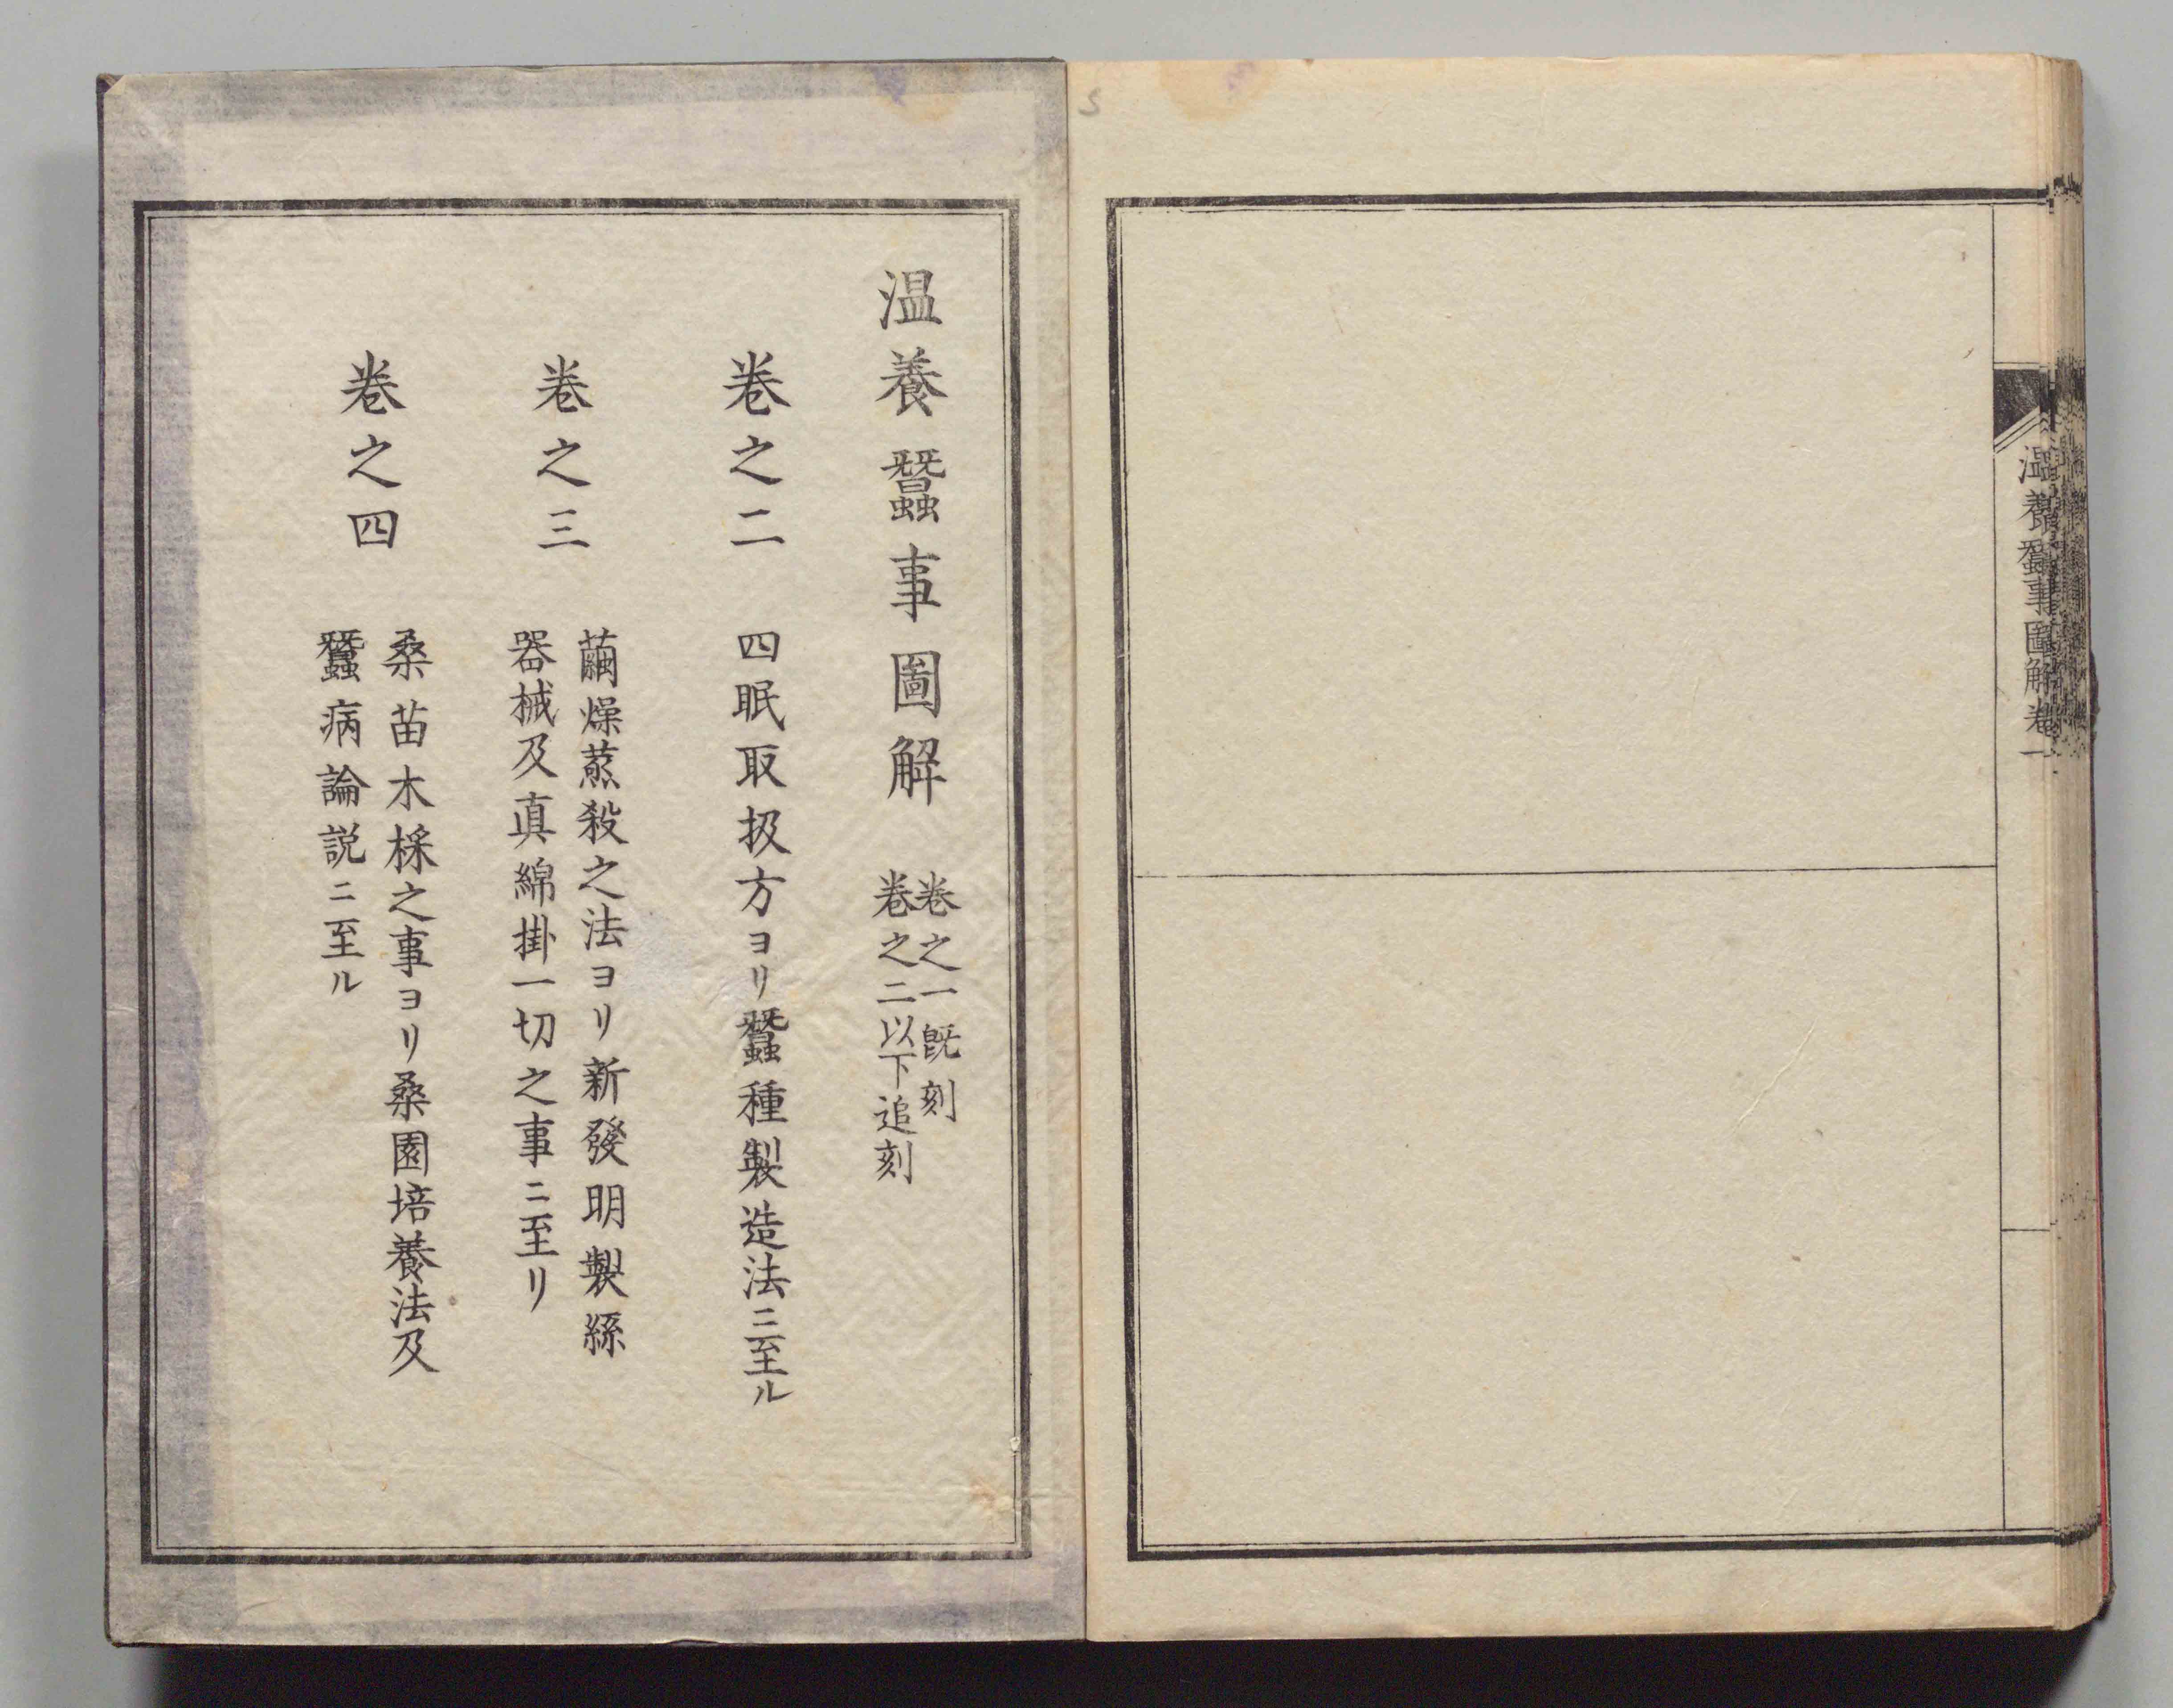 温養蠶事圖解卷一
温養蠶事圖解
卷之一既刻
卷之二以下追刻
卷之二 四眠取扱方ヨリ蠶種製造法ニ至ル
卷之三 繭燥蒸殺之法ヨリ新發明製絲
器械及真綿掛一切之事ニ至リ
卷之四 桑苗木採之事ヨリ桑園培養法及
蠶病論説ニ至ル